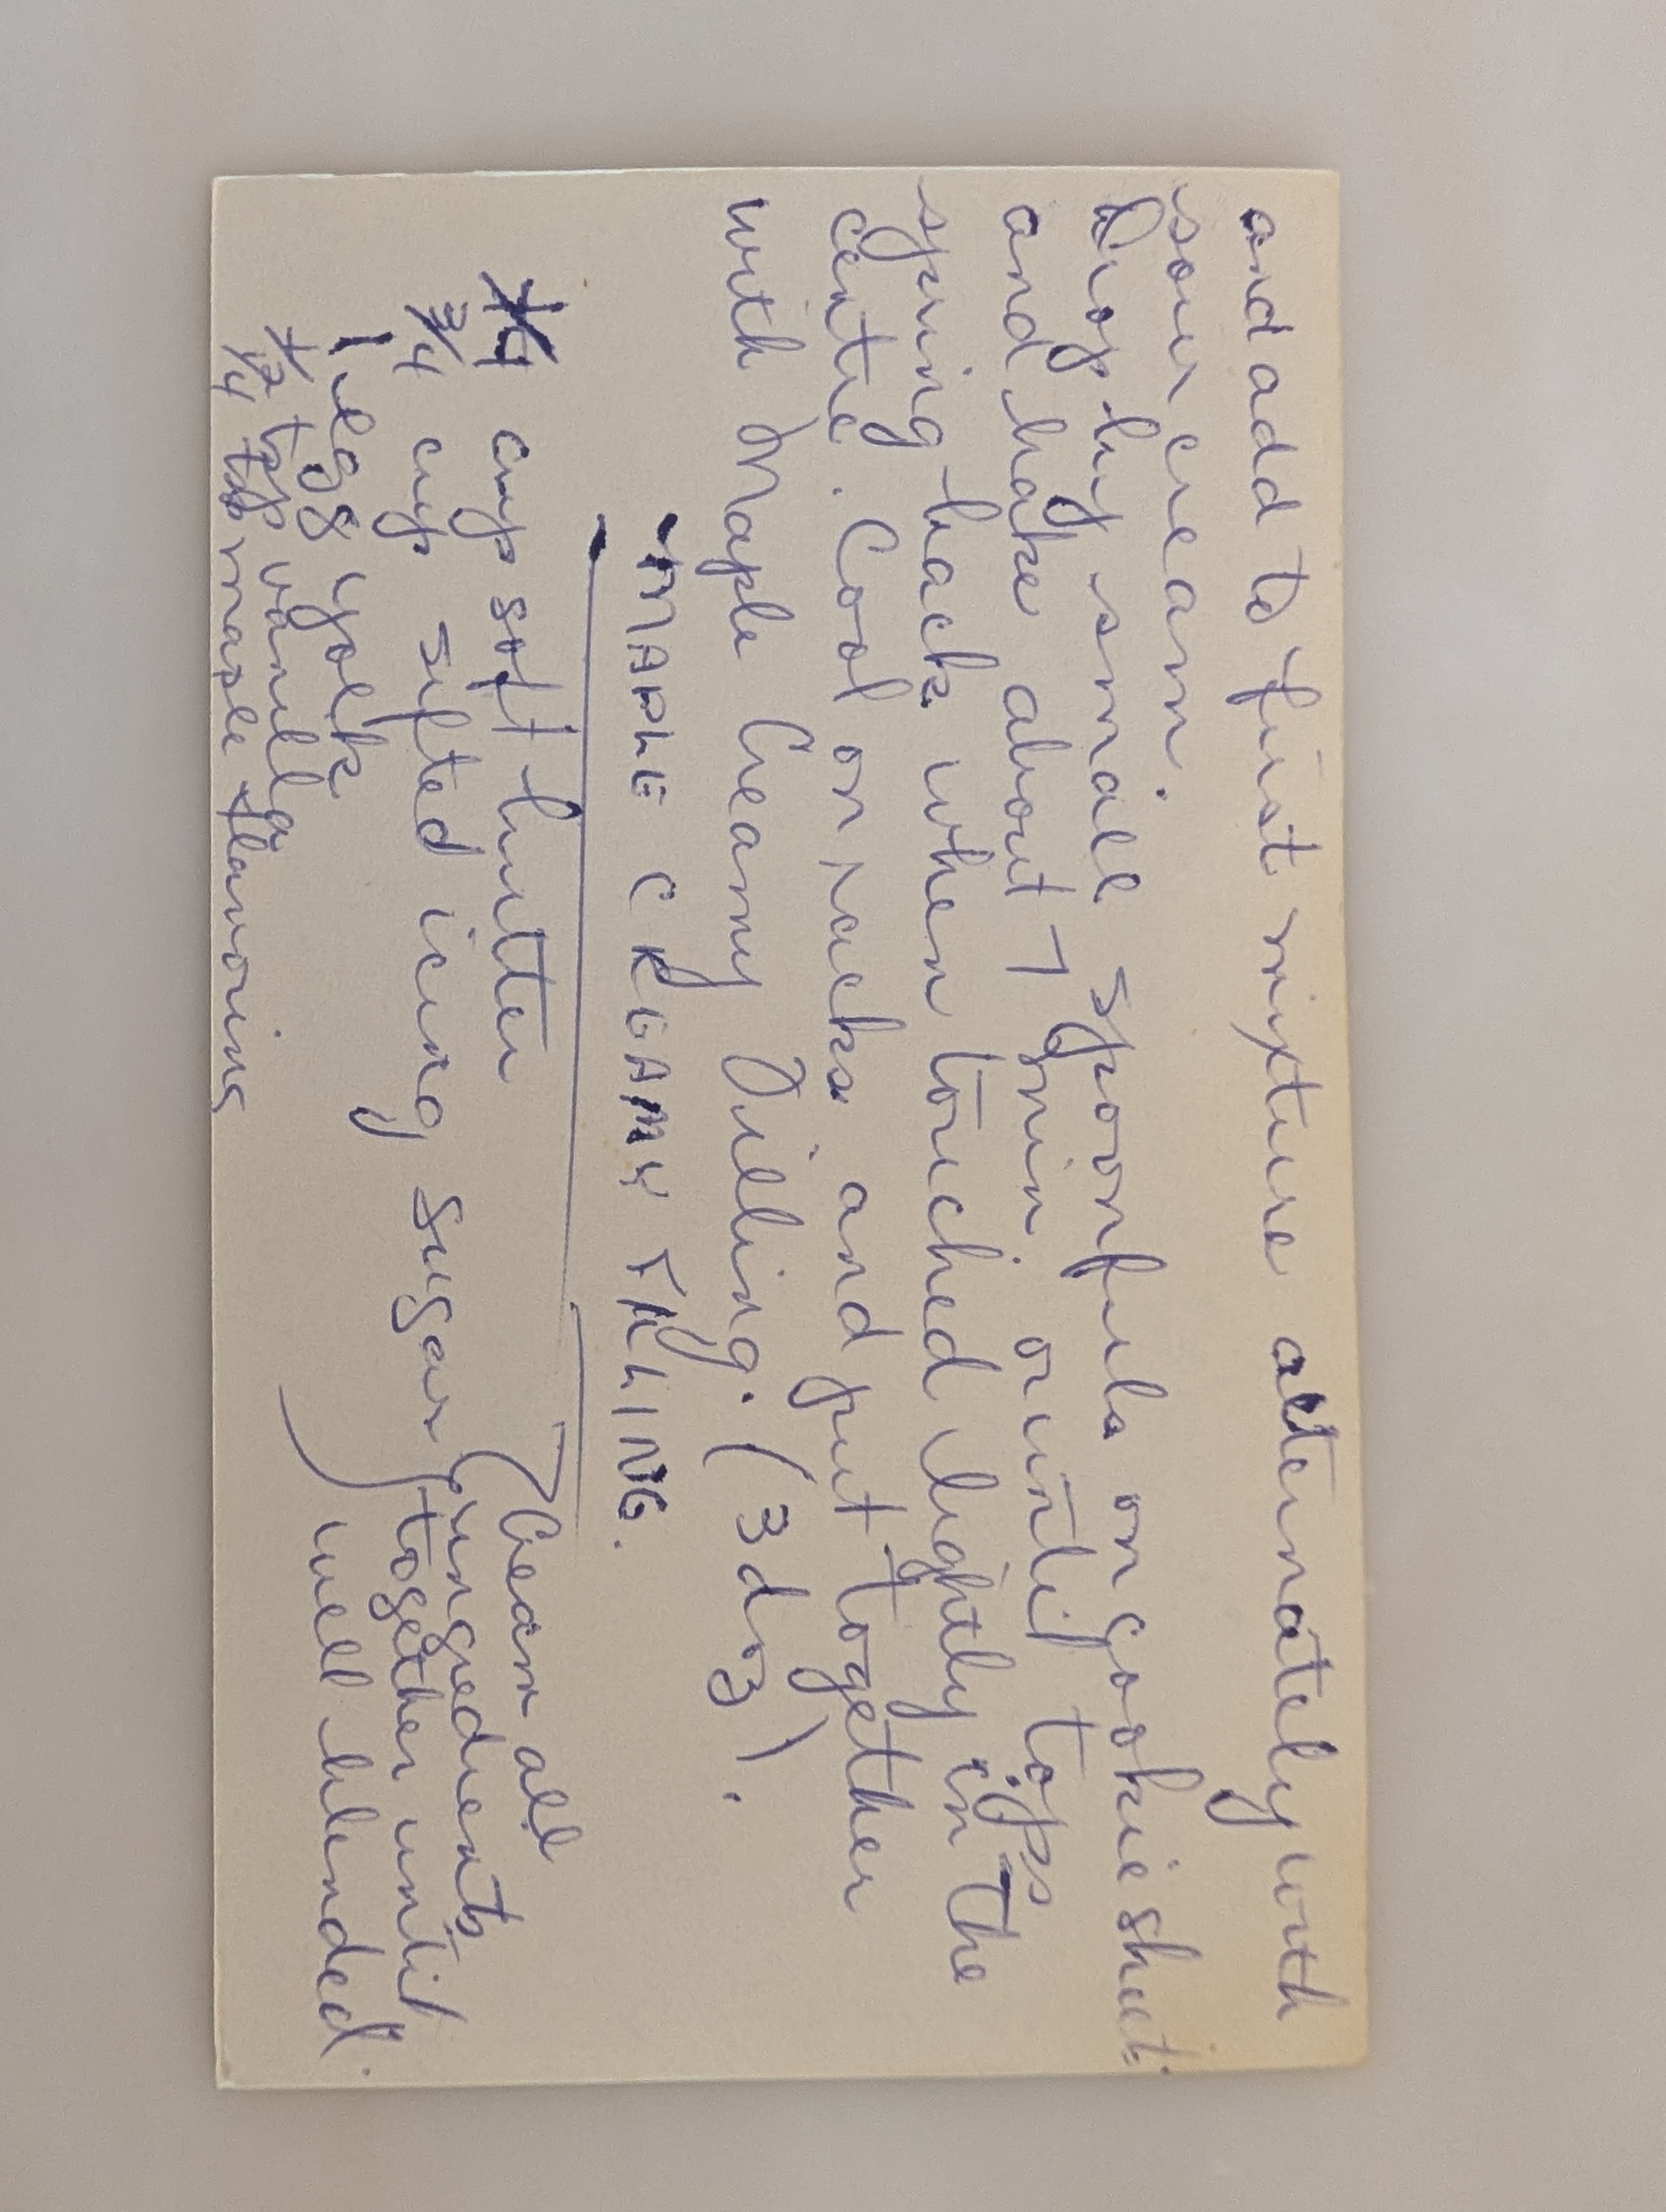 and add to first mixture alternately with
sour cream.
Drop by small spoonfuls on cookie sheet
and bake about 7 min. or until tops
spring back when touched lightly in the
centre. Cool on racks and put together
with Maple Creamy Filling. (3 doz).
MAPLE CREAMY FILLING.
1/4 cup soft butter
3/4 cup sifted icing sugar
1 egg yolk
1/2 tsp vanilla
1/4 tsp maple flavoring
Cream all
ingredients
together until
well blended.